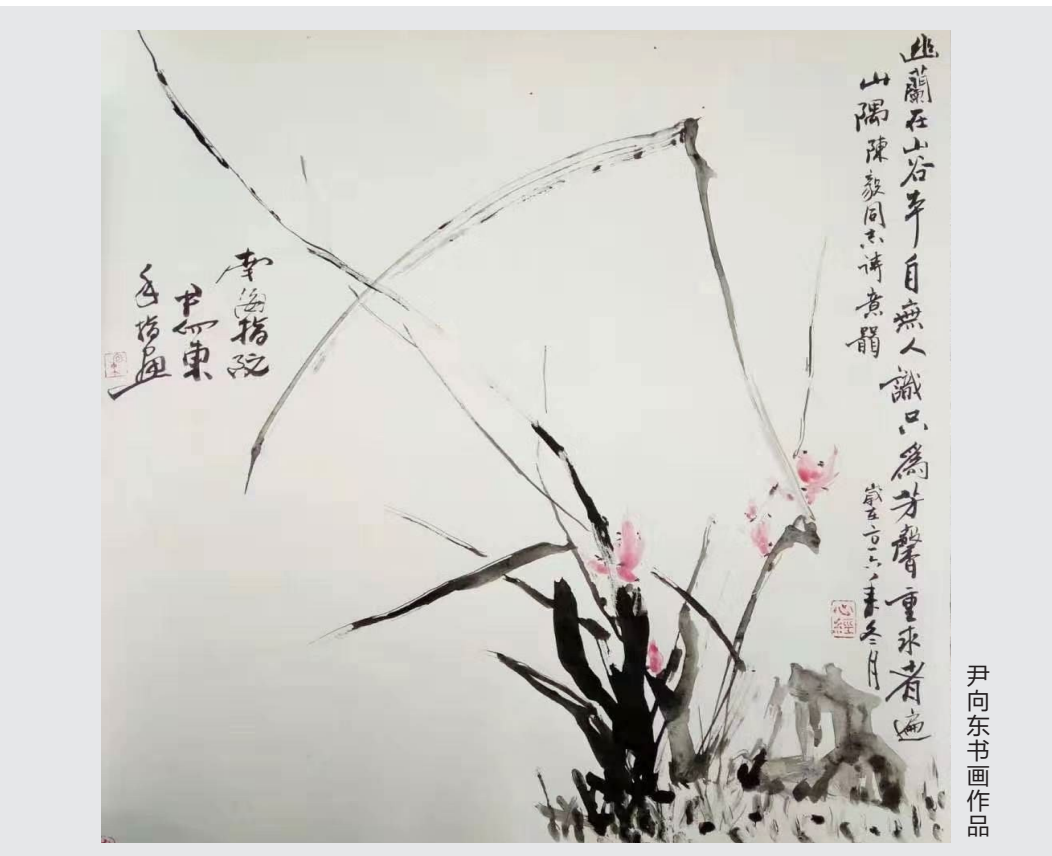 幽蘭在山谷本自無人識只為芳馨重求者遍
山隅陳毅同志詩意
歲在年冬月
心經
南海指
尹向東
手指畫
尹向东书画作品